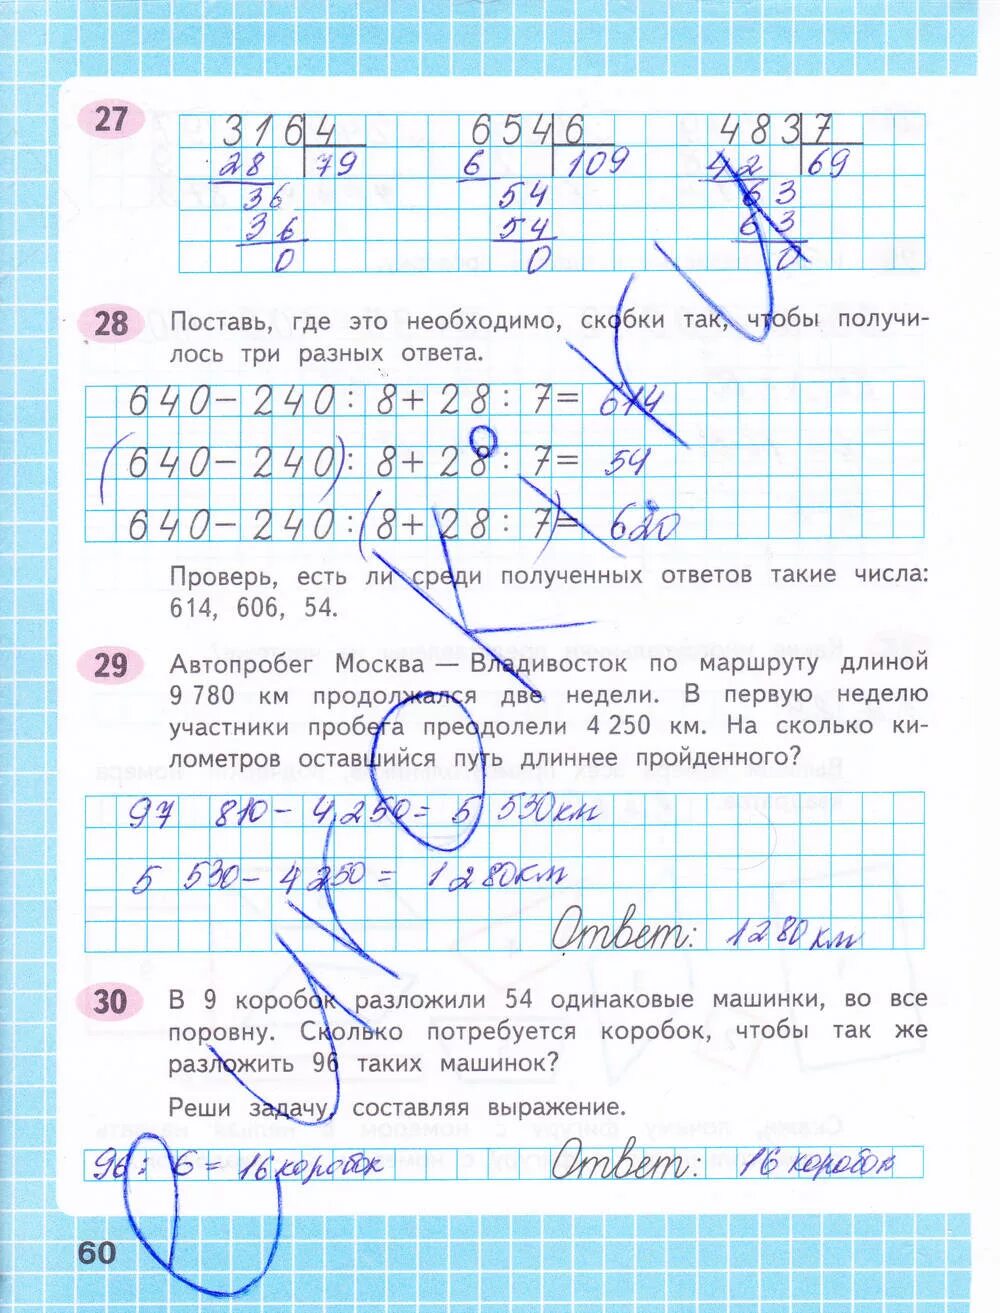 27
316 4 654 6 483 7
28 79 6 109 42 69
36 54 63
36 54 63
0 0 0
28 Поставь, где это необходимо, скобки так, чтобы получи-
лось три разных ответа.
640 - 240 : 8 + 28 : 7 = 614
(640 - 240) : 8 + 28 : 7 = 54
640 - 240 : (8 + 28 : 7) = 620
Проверь, есть ли среди полученных ответов такие числа:
614, 606, 54.
29 Автопробег Москва — Владивосток по маршруту длиной
9 780 км продолжался две недели. В первую неделю
участники пробега преодолели 4 250 км. На сколько ки-
лометров оставшийся путь длиннее пройденного?
97 810 - 4 250 = 5 530 км
5 530 - 4 250 = 1 280 км
Ответ: 1280 км
30 В 9 коробок разложили 54 одинаковые машинки, во все
поровну. Сколько потребуется коробок, чтобы так же
разложить 96 таких машинок?
Реши задачу, составляя выражение.
96 : 6 = 16 коробок Ответ: 16 коробок
60